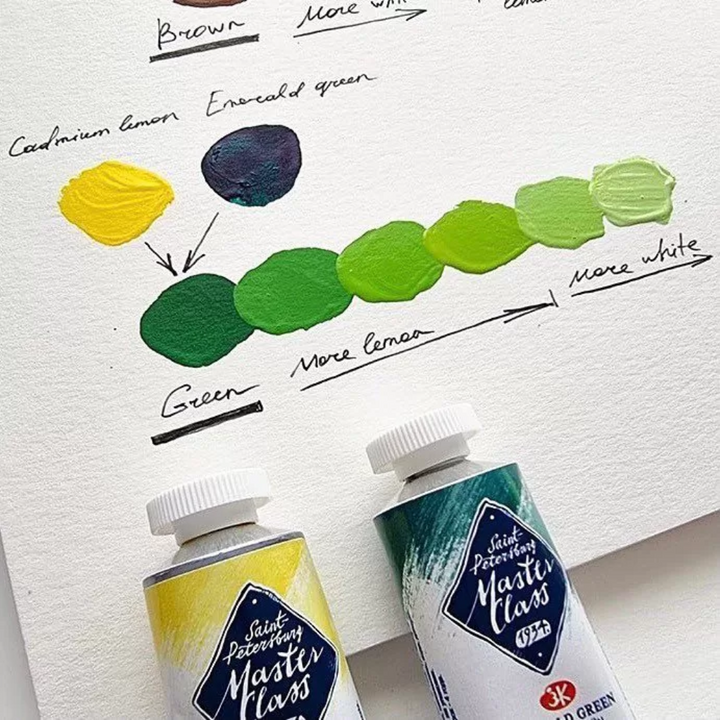 Brown
More
Cadmium lemon Emerald green
More white
More lemon
Green
Saint-
Petersburg
Master
Class
Saint-
Petersburg
Master
Class
1934
ЗК
LD GREEN